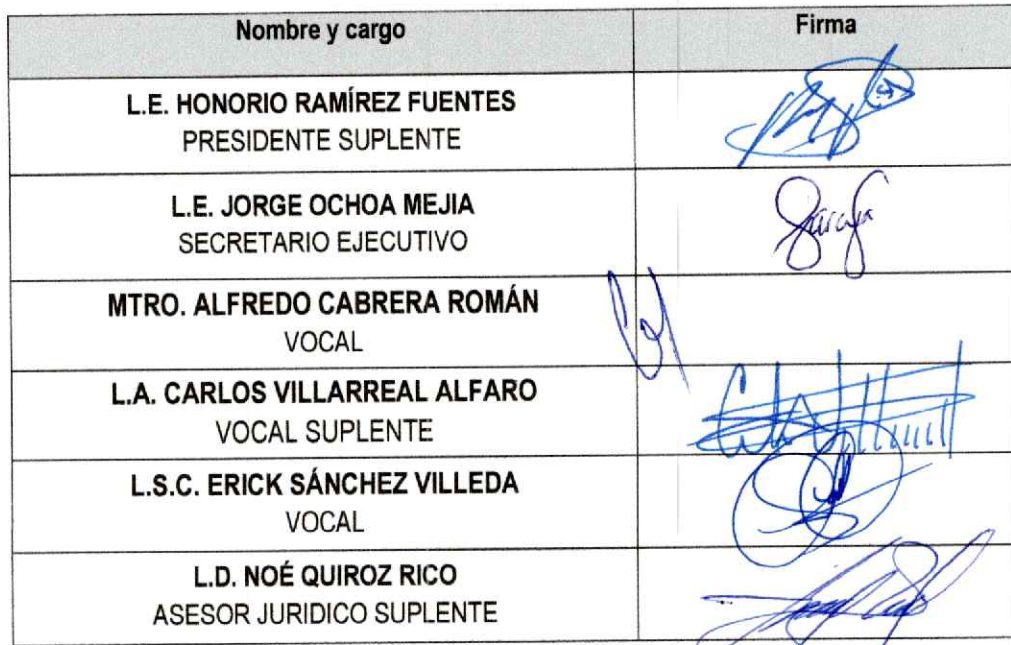 Nombre y cargo Firma
L.E. HONORIO RAMÍREZ FUENTES
PRESIDENTE SUPLENTE
L.E. JORGE OCHOA MEJIA
SECRETARIO EJECUTIVO
MTRO. ALFREDO CABRERA ROMÁN
VOCAL
L.A. CARLOS VILLARREAL ALFARO
VOCAL SUPLENTE
L.S.C. ERICK SÁNCHEZ VILLEDA
VOCAL
L.D. NOÉ QUIROZ RICO
ASESOR JURIDICO SUPLENTE